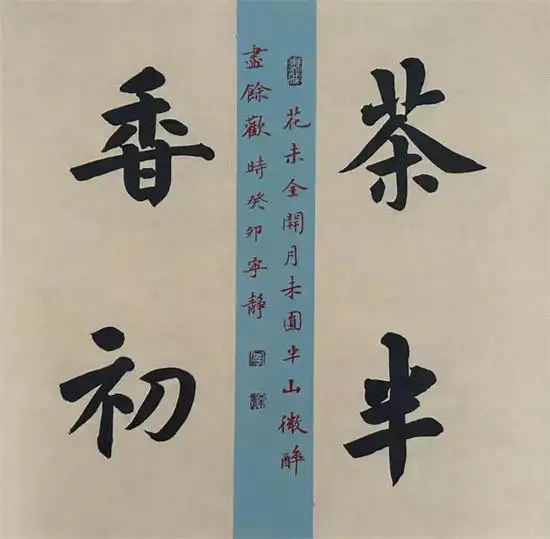 茶半
香初
花未全開月未圓半山微醉
盡餘歡時癸卯寧静